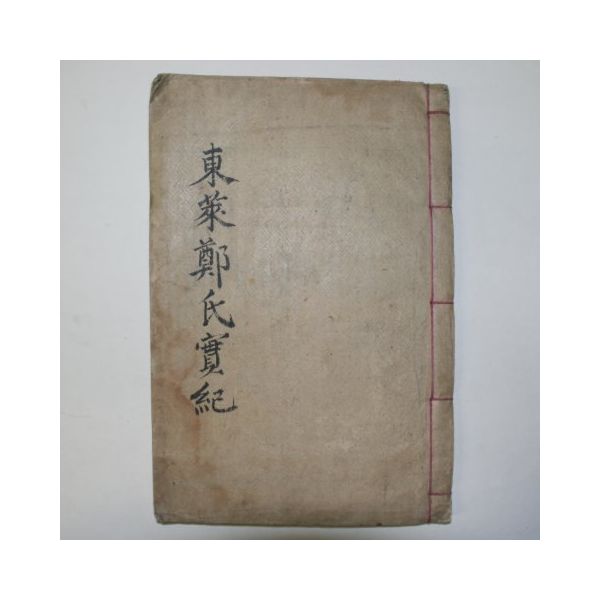 東萊鄭氏實紀